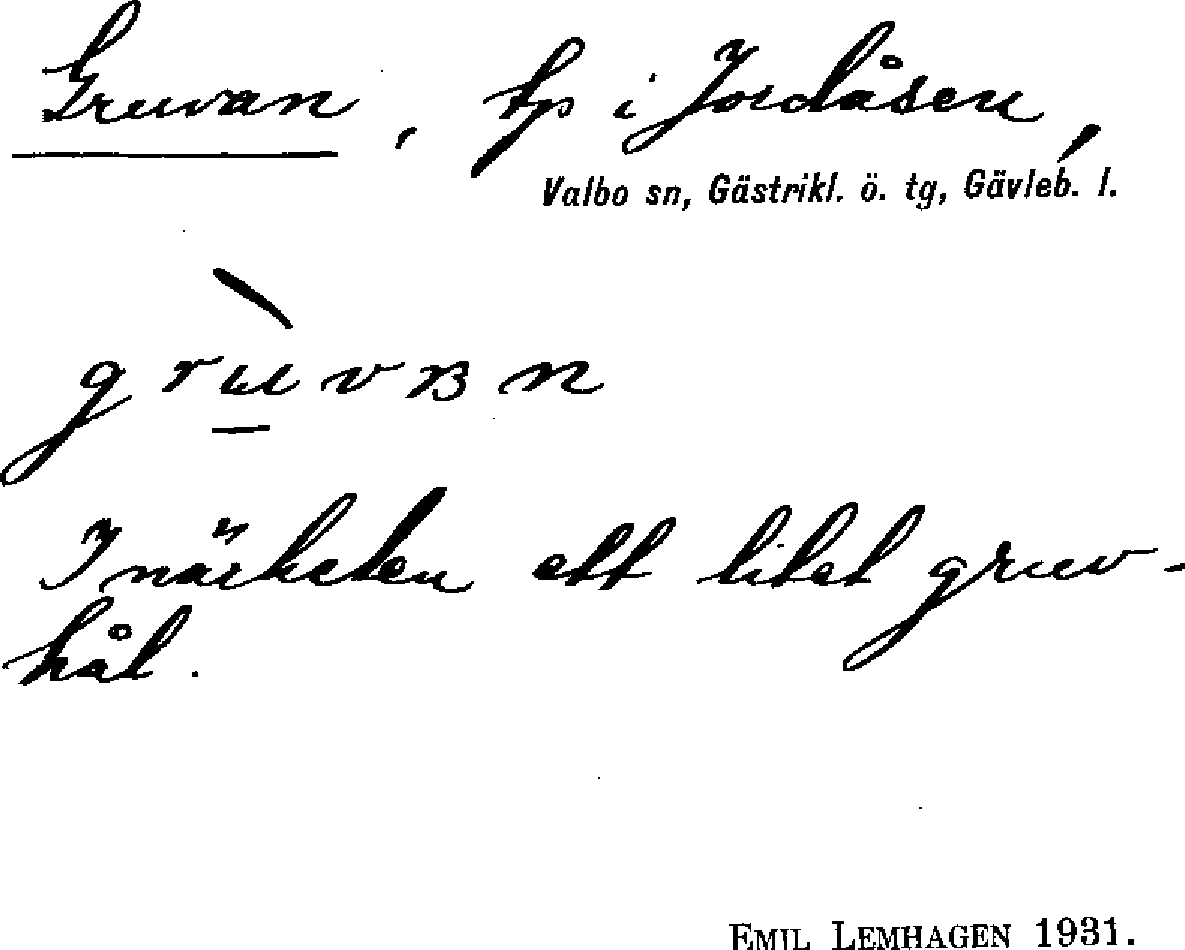 Gruvan, tp i Jordåsen,
Valbo sn, Gästrikl. ö. tg, Gävleb. l.
grùvʙn
I närheten ett litet gruv-
hål.
EMIL LEMHAGEN 1931.